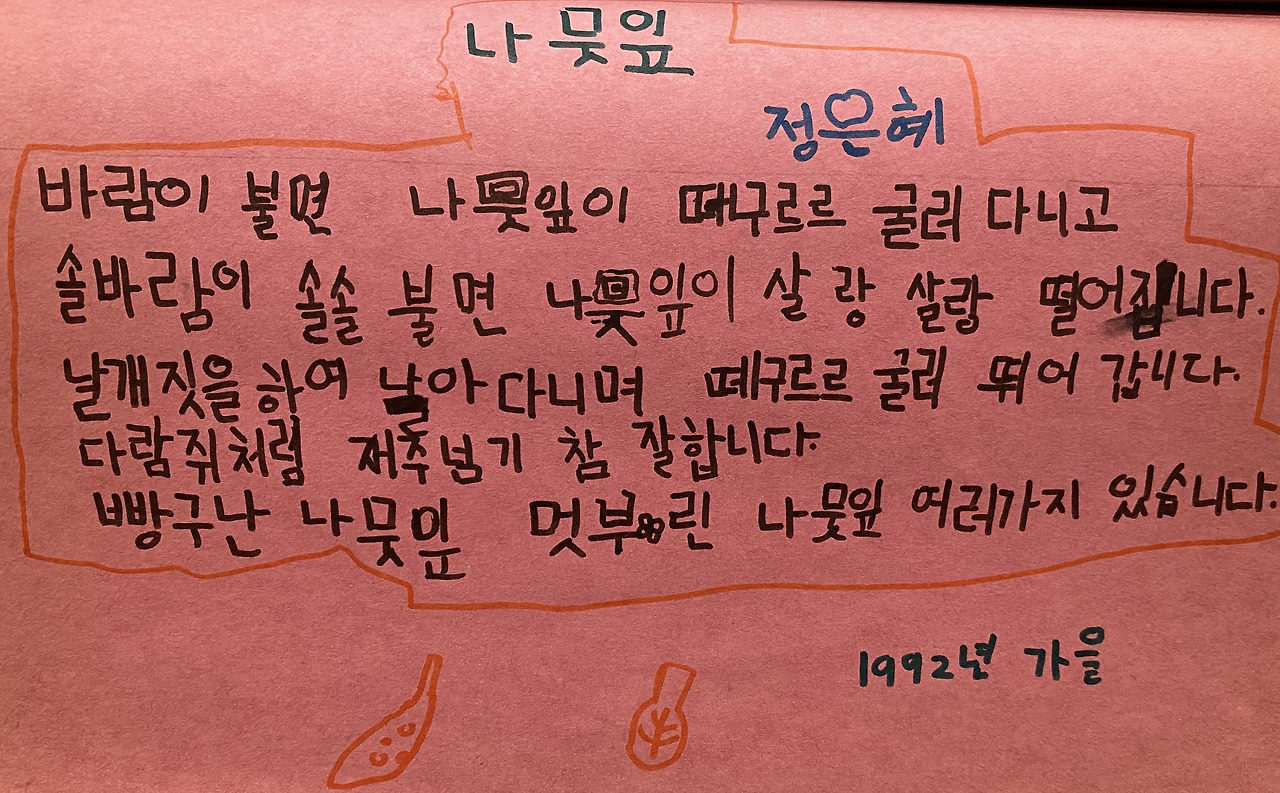 나뭇잎
정은혜
바람이 불면 나뭇잎이 때구르르 굴러 다니고
솔바람이 솔솔 불면 나뭇잎이 살랑 살랑 떨어집니다.
날개짓을 하여 날아다니며 떼구르르 굴러 뛰어 갑니다.
다람쥐처럼 재주넘기 참 잘합니다.
빵구난 나뭇잎 멋부린 나뭇잎 여러가지 있습니다.
1992년 가을